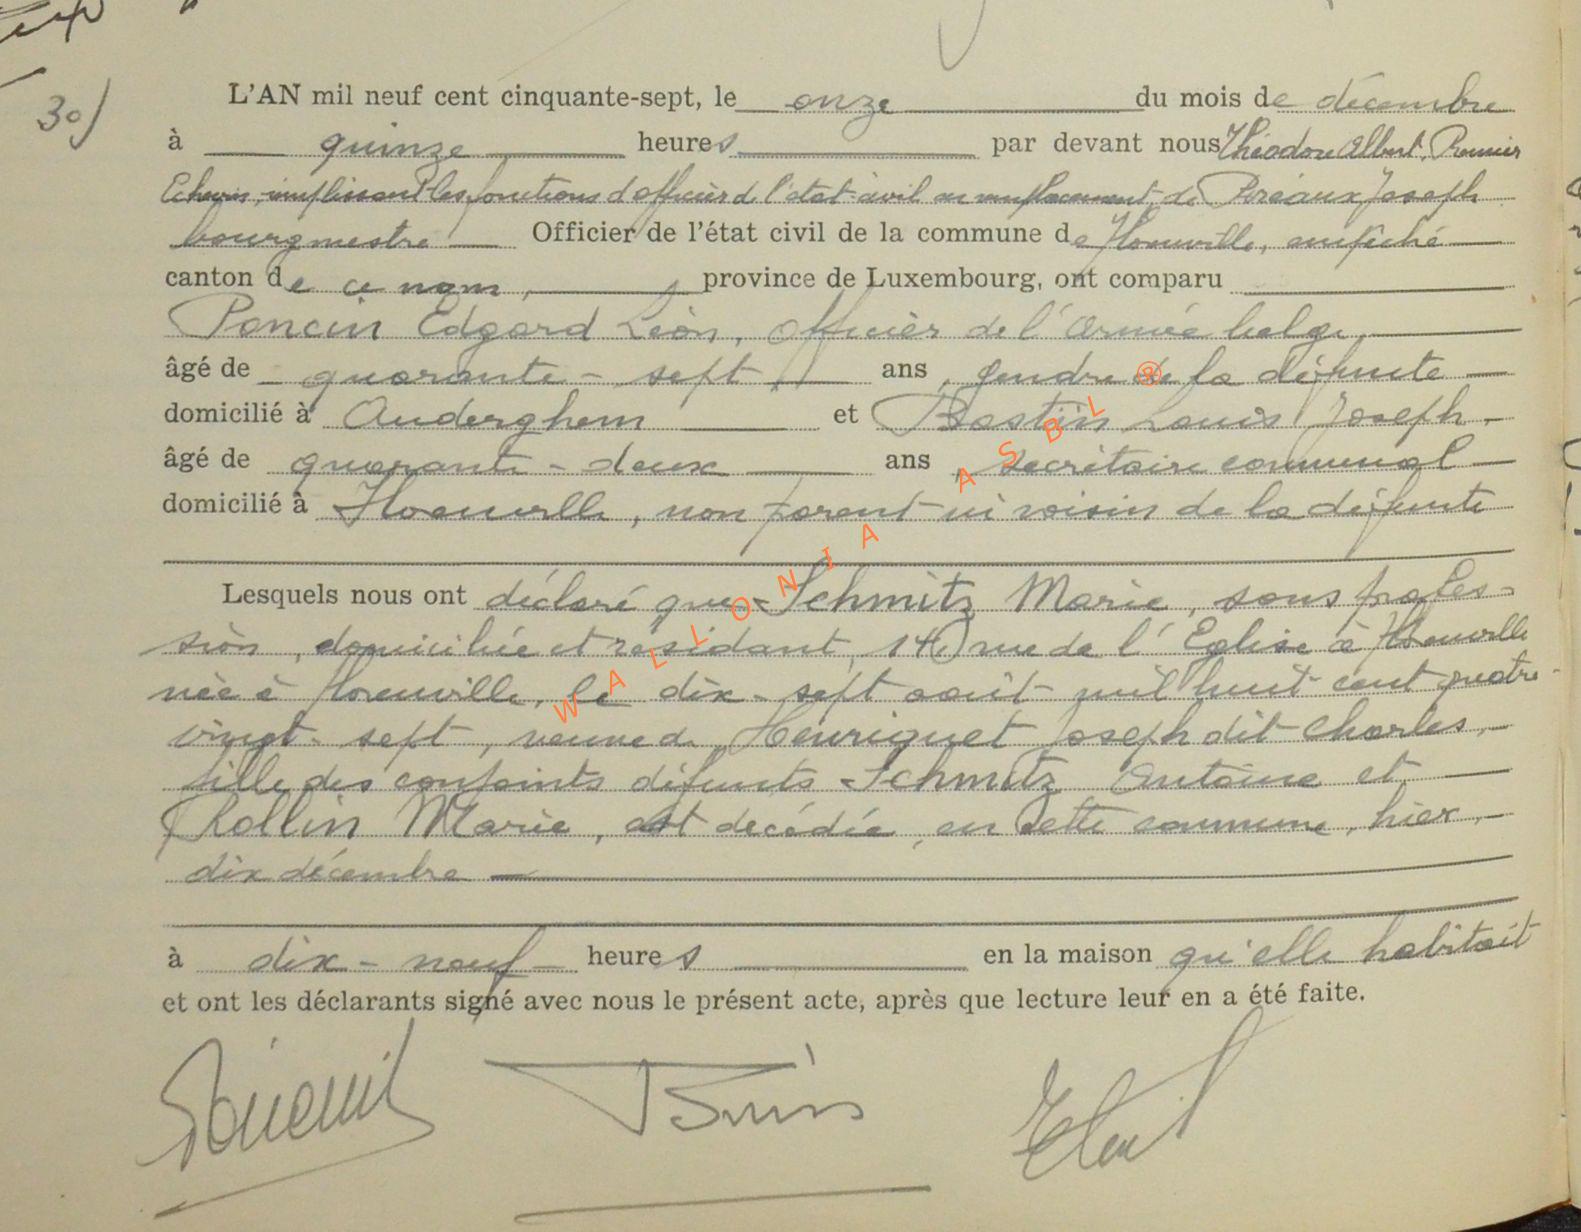 30)
L'AN mil neuf cent cinquante-sept, le onze du mois de décembre
à quinze heures par devant nous Théodore Albert, Premier
Echevin, remplissant les fonctions d'officier de l'état-civil en remplacement de Joseph
bourgmestre Officier de l'état civil de la commune de Houville, empêché
canton de ce nom, province de Luxembourg, ont comparu
Poncin Edgard Léon, Officier de l'Armée belge,
âgé de quarante-sept ans, gendre de la défunte
domicilié à Auderghem et Bastin Louis Joseph
âgé de quarante-deux ans, secrétaire communal
domicilié à , non parent ni voisin de la défunte
Lesquels nous ont déclaré que Schmitz Marie, sans profes=
sion, domiciliée et résidant, 14 rue de l'Eglise à
née à , le dix-sept août mil huit cent quatre-
vingt-sept, veuve de Henriquet Joseph dit Charles,
fille des conjoints défunts Schmitz Antoine et
Rollin Marie, est décédée, en cette commune, hier,
dix décembre
à dix-neuf heures en la maison qu'elle habitait
et ont les déclarants signé avec nous le présent acte, après que lecture leur en a été faite.
WALLONIA ASBL ®